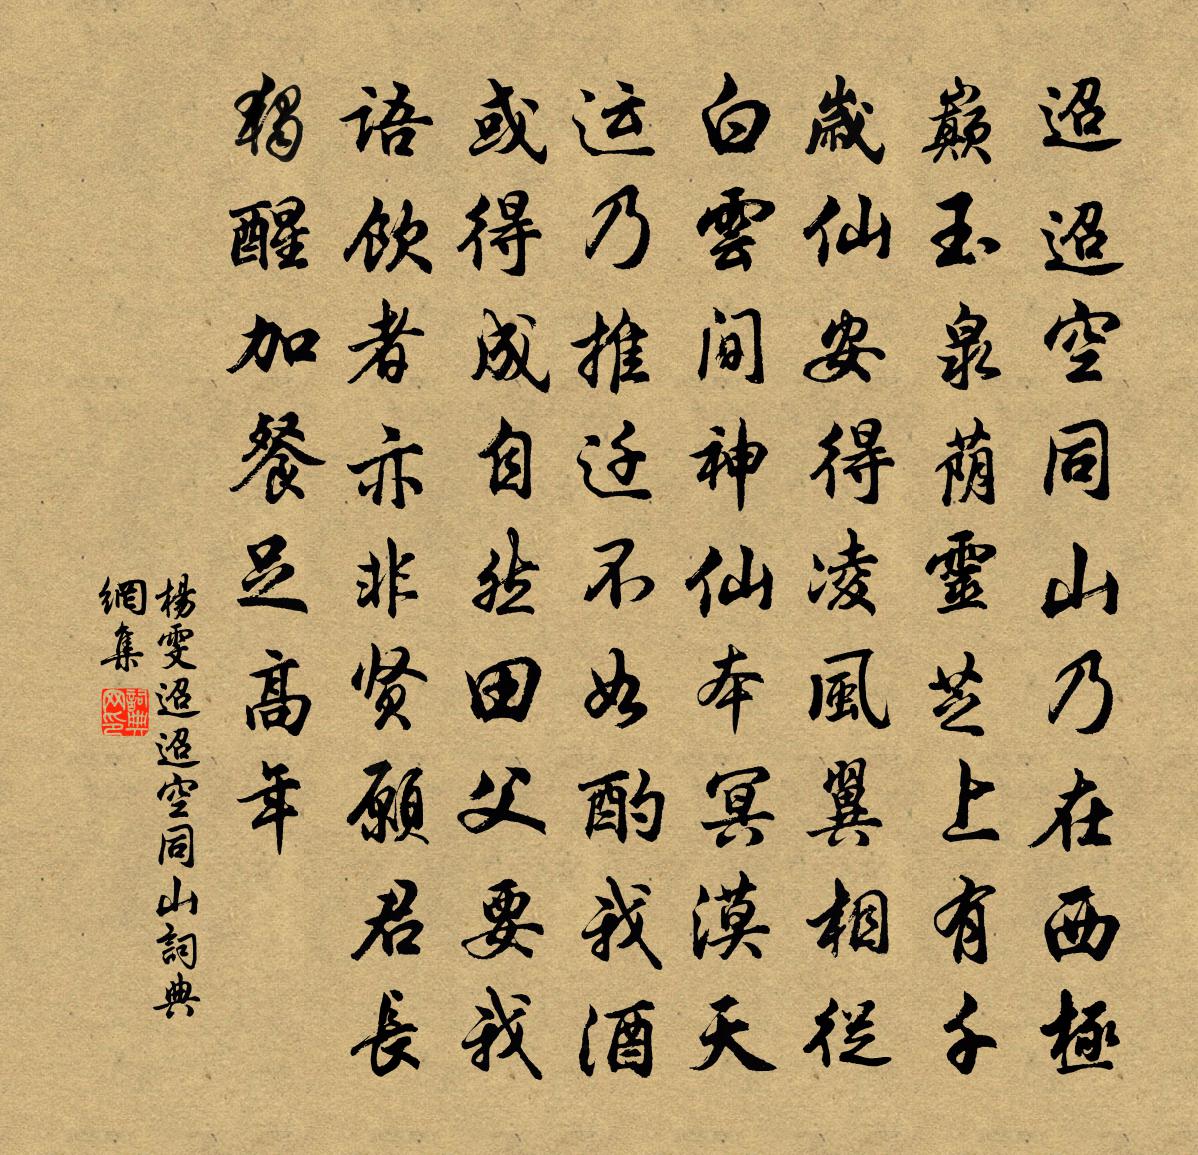 迢迢空同山乃在西極
巔玉泉荫靈芝上有千
歲仙安得凌風翼相從
白雲间神仙本冥漠天
运乃推迁不如酌我酒
或得成自然田父要我
语飲者亦非贤願君長
獨醒加餐足高年
楊雯迢迢空同山詞典
網集
詞典
网印